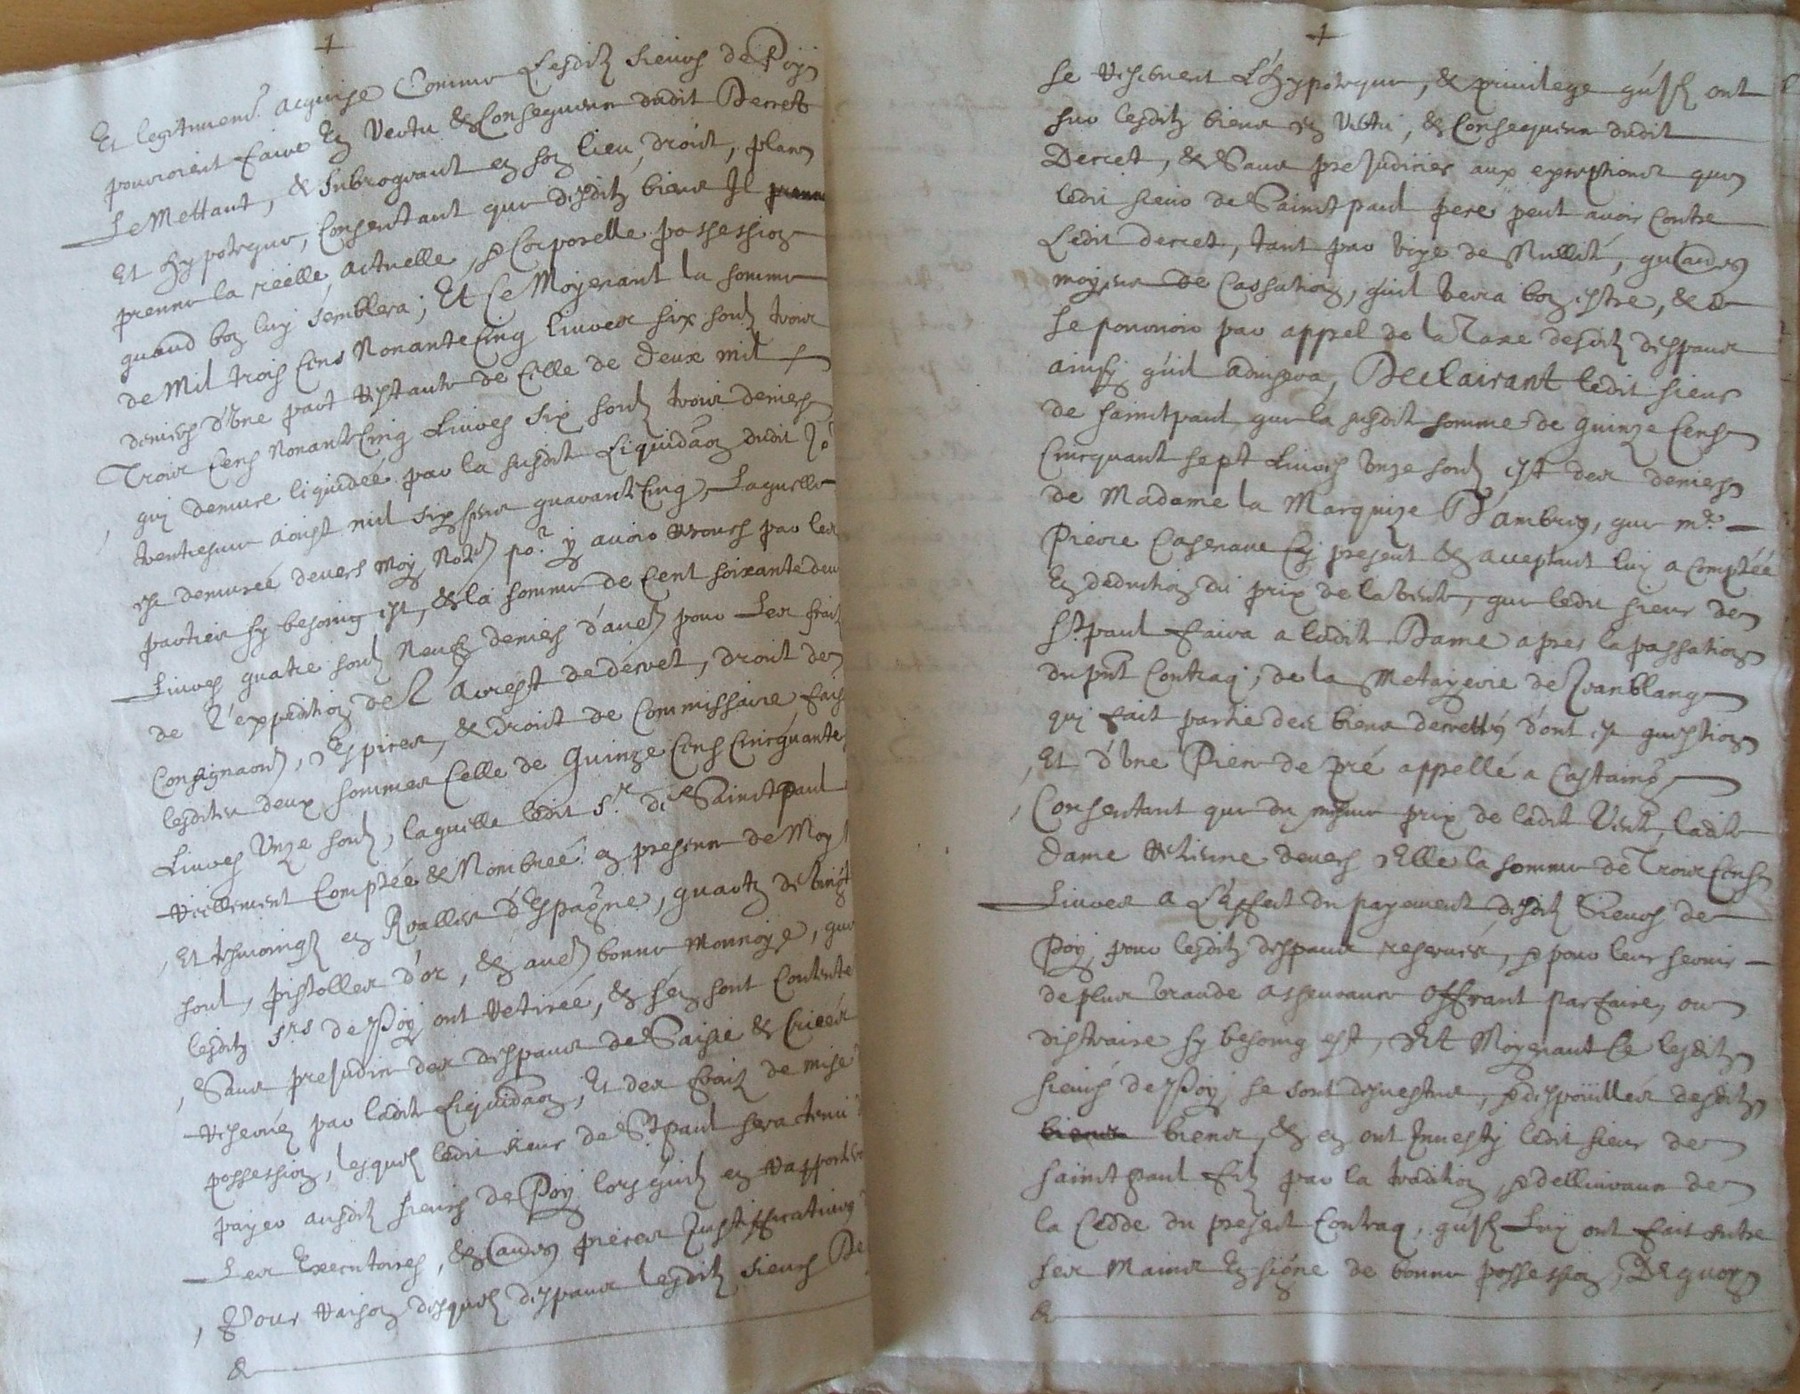 Et legitimem.t acquise Comme Lesditz sieurs de Poy
pourroient faire En Vertu & Consequence dudit Decret
Le Mettant, & Subrogeant en son lieu, droict, place
Et hypoteque, Consentant que desditz biens Il
prenne la réélle, actuelle, & Corporelle possession
quand bon luy semblera; Et Ce Moyenant la somme
de Mil trois Cens NonanteCinq livres six soulz trois
deniers d'Une part restante de Celle de deux mil
Trois Cens NonanteCinq Livres six soulz trois deniers
quy demure liquidée par la susdite Liquidãon dudit Jo.r
trentiesme aoust mil six cens quaranteCinq, Laquelle
est demurée devers Moy No.re po.r y avoir recours par les
parties sy besoing est, & la somme de Cent soixante deux
Livres quatre soulz Neuf deniers d'autre pour Les frais
de L'expedition de L'Arrest de decret, droit de
Consignaons, Espices, & droit de Commissaire
lesdites deux sommes Celle de Quinze Cens Cincquante
Livres Unze soulz, laquelle ledit S.r de Sainct paul
réellement Comptée & Nombreé en presence de Moy
Et tesmoingz en Realles d'Espagne, quartz de
soul, pistolles d'or, & autre bonne Monnoye, que
lesditz S.rs de Poy ont retirée, & s'en sont Contente
Sans prejudice des despans de Saisie & Criées
reservés par ladite Liquidãon, Et des fraiz de mise
possession, lesquelz ledit sieur de S.t paul sera tenu
payer ausditz sieurs de Poy lors quilz en rapporteront
Les Executoires, & autres pieces Justifficatives
Pour raison desquelz despans lesditz sieurs De
&
se reservent L'hypoteque, & privilege qu'ilz ont
sur lesditz biens en Vertu, & Consequence dudit
Decret, & Sans prejudicier aux exceptions que
ledit sieur de Sainct paul pere peut avoir Contre
Ledit decret, tant par voye de Nullité, qu'autres
moyens de Cassation, quil verra bon estre, & de
se pourvoir par appel de la Taxe desditz despans
ainsy quil advisera, Declairant ledit sieur
de sainct paul que la susdite somme de quinze Cens
Cincquante sept Livres Unze soulz est des deniers
de Madame la Marquize D'ambres, que m.e
Pierre Casenave Cy present & acceptant luy a Comptée
En deduction du prix de la vente, que ledit sieur de
S.t paul faira a ladite Dame apres la passation
du pnt Contraq, de la Metayerie de
quy fait partie des biens decrettés dont est question
Et d'Une Piece de pré appellé a Castaing,
Consentant que du mesme prix de ladite Vente, ladite
Dame retienne devers Elle la somme de Trois Cens
Livres a L'Effect du payement desditz Sieurs de
Poy, pour lesditz despans reservés, & pour leur servir
de plus Grande asseurance offrant parfaire, ou
distraire sy besoing est, Et Moyenant Ce lesditz
sieurs de Poy, se sont desvestus, & despoüillés desditz
biens biens, & en ont Investy ledit sieur de
sainct paul filz par la tradition, & dellivrance de
la Cedde du present Contraq, quilz Luy ont fait entre
ses Mains En signe de bonne possession, De quoy
&